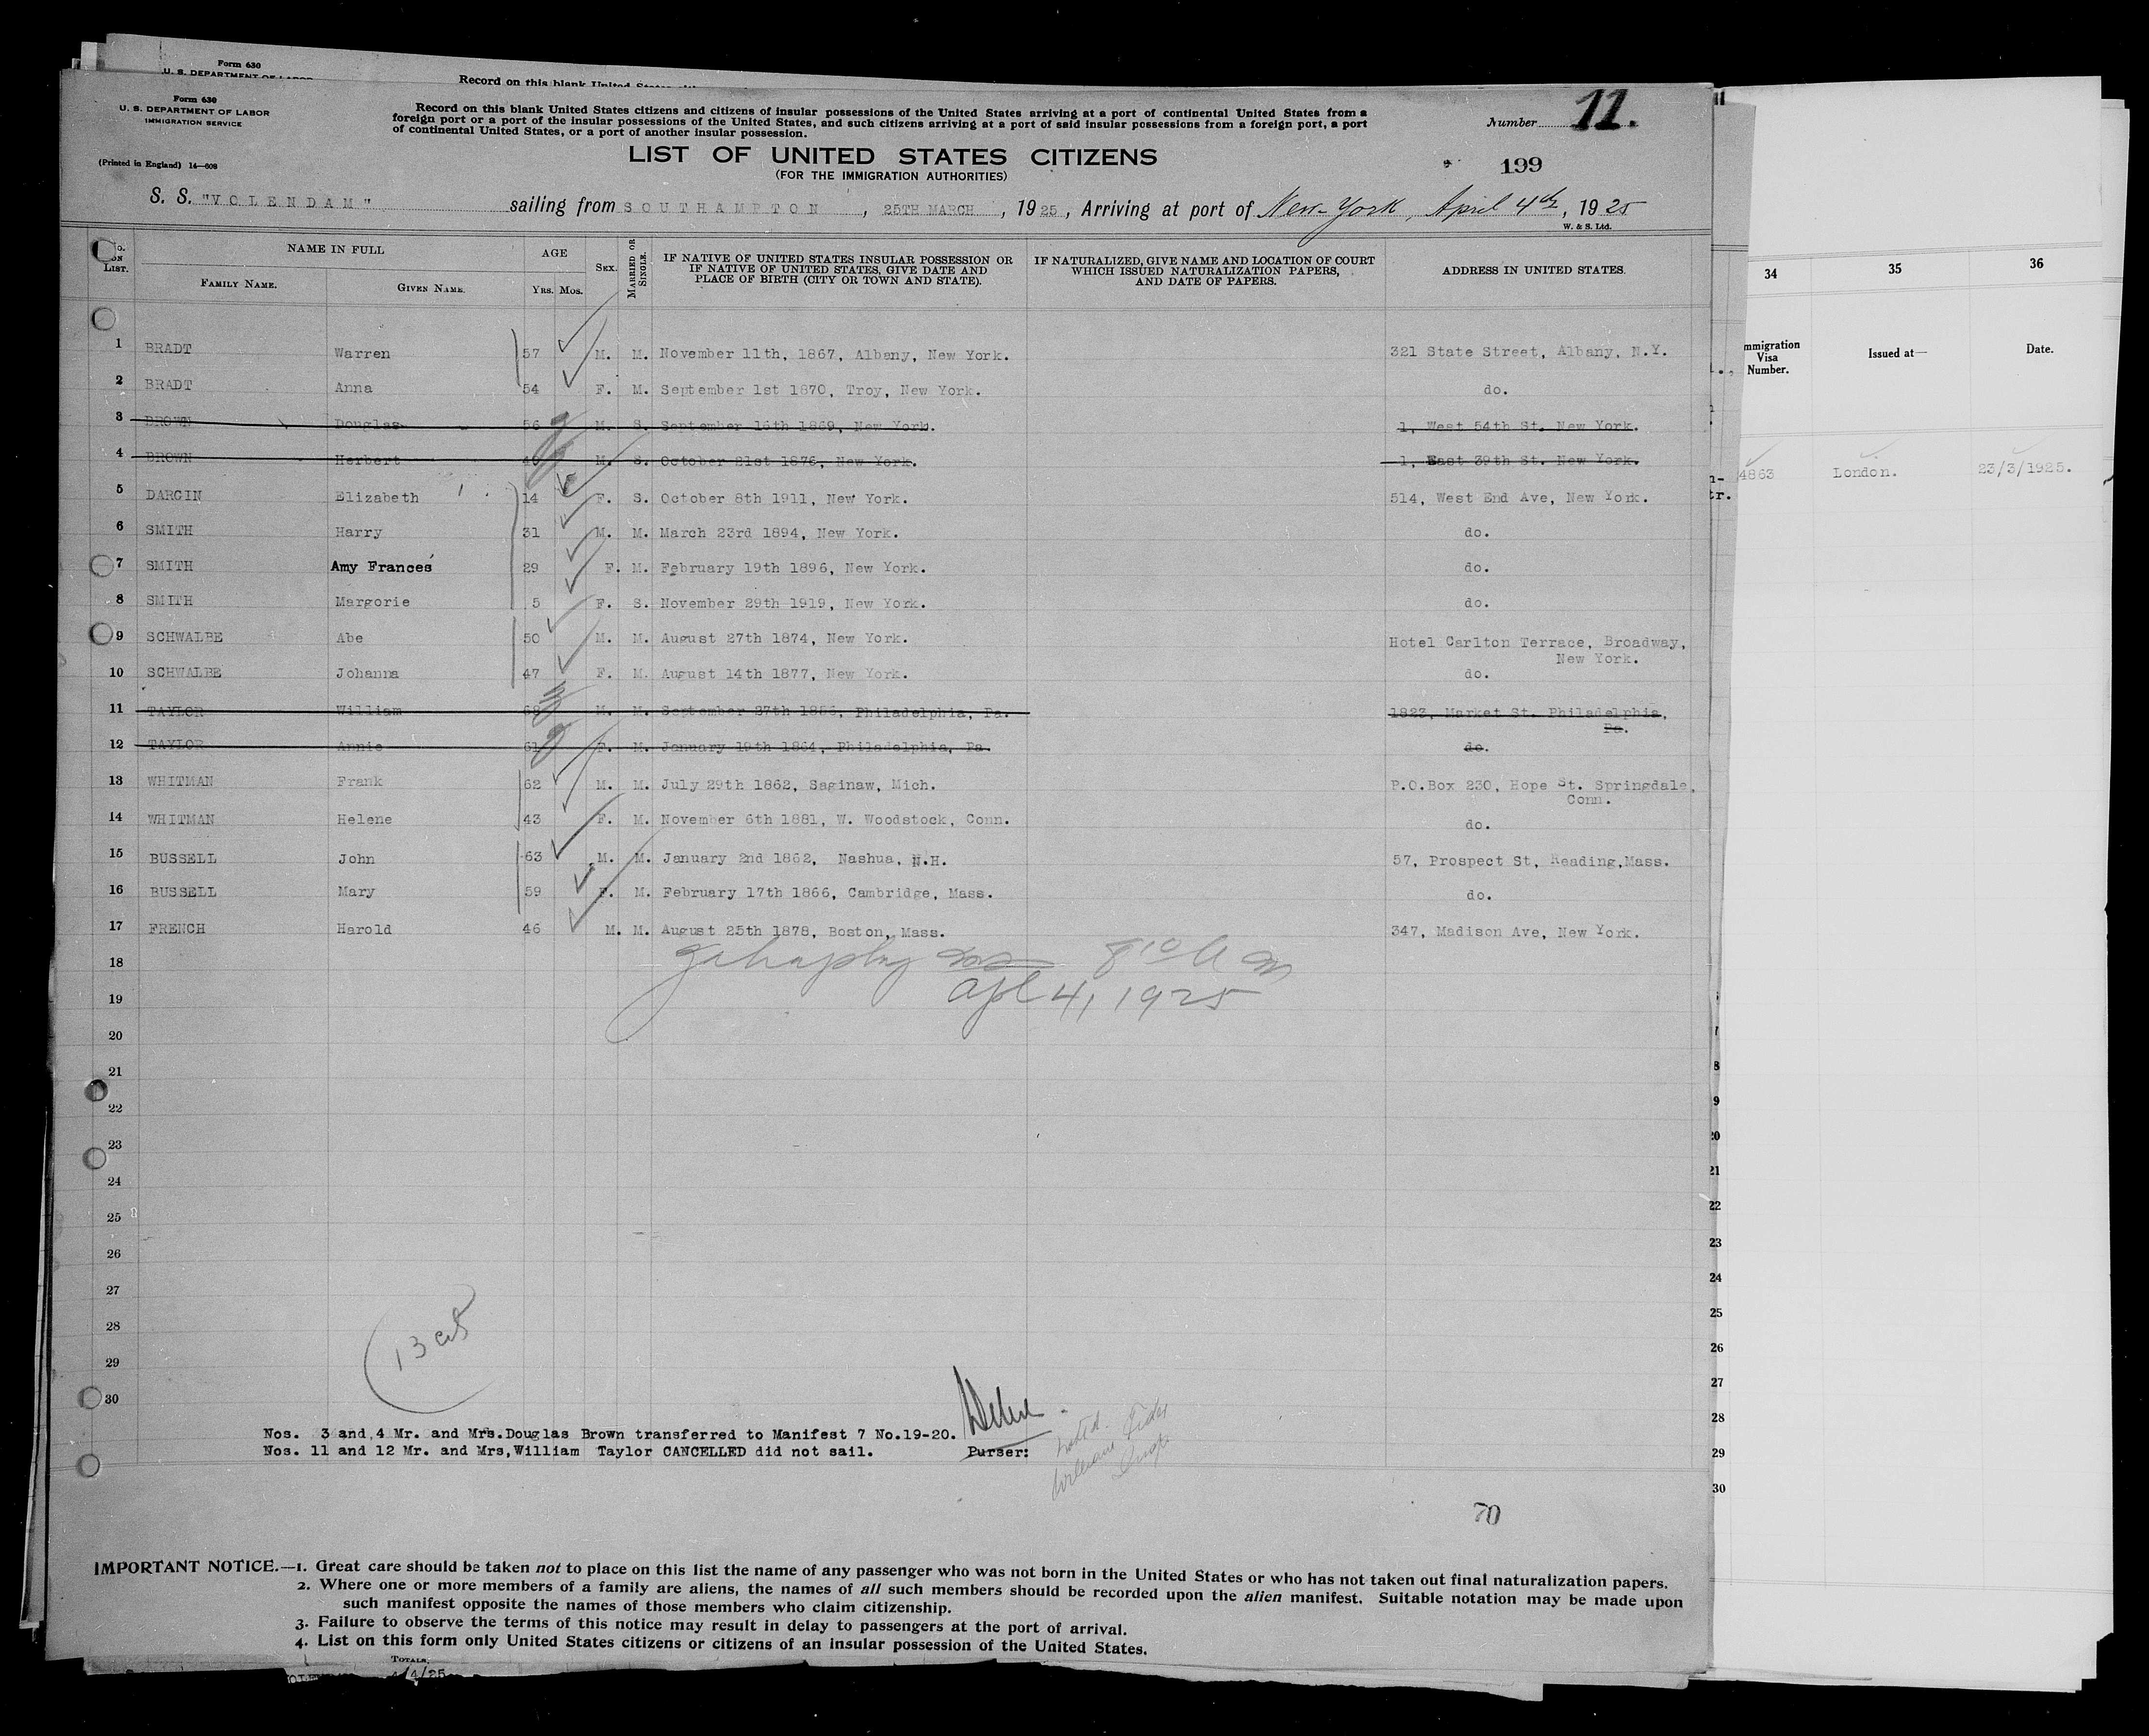 Form 630
U. S. DEPARTMENT OF LABOR
Record on this blank United States
Form 630
U. S. DEPARTMENT OF LABOR
IMMIGRATION SERVICE
(Printed in England) 14—608
Record on this blank United States citizens and citizens of insular possessions of the United States arriving at a port of continental United States from a
foreign port or a port of the insular possessions of the United States, and such citizens arriving at a port of said insular possessions from a foreign port, a port
of continental United States, or a port of another insular possession.
Number 11.
LIST OF UNITED STATES CITIZENS
(FOR THE IMMIGRATION AUTHORITIES)
199
S. S. "VOLENDAM" sailing from SOUTHAMPTON, 25TH MARCH, 1925, Arriving at port of New York, April 4th, 1925
W. & S. Ltd.
No. ON LIST. NAME IN FULL AGE SEX. MARRIED OR SINGLE. IF NATIVE OF UNITED STATES INSULAR POSSESSION OR IF NATIVE OF UNITED STATES, GIVE DATE AND PLACE OF BIRTH (CITY OR TOWN AND STATE). IF NATURALIZED, GIVE NAME AND LOCATION OF COURT WHICH ISSUED NATURALIZATION PAPERS, AND DATE OF PAPERS. ADDRESS IN UNITED STATES.
FAMILY NAME. GIVEN NAME. YRS. MOS.
1 BRADT Warren 57 M. M. November 11th, 1867, Albany, New York. 321 State Street, Albany, N.Y.
2 BRADT Anna 54 F. M. September 1st 1870, Troy, New York. do.
3 BROWN Douglas 56 M. S. September 16th 1869, New York. 1, West 54th St. New York.
4 BROWN Herbert M. S. October 21st 1876, New York. 1, East 39th St. New York.
5 DARGIN Elizabeth 14 F. S. October 8th 1911, New York. 514, West End Ave, New York.
6 SMITH Harry 31 M. M. March 23rd 1894, New York. do.
7 SMITH Amy Frances 29 F. M. February 19th 1896, New York. do.
8 SMITH Margorie 5 F. S. November 29th 1919, New York. do.
9 SCHWALBE Abe 50 M. M. August 27th 1874, New York. Hotel Carlton Terrace, Broadway,
New York.
10 SCHWALBE Johanna 47 F. M. August 14th 1877, New York. do.
11 TAYLOR William 68 M. M. September 27th 1856, Philadelphia, Pa. 1823, Market St. Philadelphia,
Pa.
12 TAYLOR Annie 61 F. M. January 19th 1864, Philadelphia, Pa. do.
13 WHITMAN Frank 62 M. M. July 29th 1862, Saginaw, Mich. P.O.Box 230, Hope St. Springdale,
Conn.
14 WHITMAN Helene 43 F. M. November 6th 1881, W. Woodstock, Conn. do.
15 BUSSELL John 63 M. M. January 2nd 1862, Nashua, N.H. 57, Prospect St, Reading,Mass.
16 BUSSELL Mary 59 F. M. February 17th 1866, Cambridge, Mass. do.
17 FRENCH Harold 46 M. M. August 25th 1878, Boston, Mass. 347, Madison Ave, New York.
18
19 Apl 4, 1925
20
21
22
23
24
25
26
27
28
29
30
13
Nos. 3 and 4 Mr. and Mrs.Douglas Brown transferred to Manifest 7 No.19-20.
Nos. 11 and 12 Mr. and Mrs,William Taylor CANCELLED did not sail. Purser:
70
IMPORTANT NOTICE.—1. Great care should be taken not to place on this list the name of any passenger who was not born in the United States or who has not taken out final naturalization papers.
2. Where one or more members of a family are aliens, the names of all such members should be recorded upon the alien manifest. Suitable notation may be made upon
such manifest opposite the names of those members who claim citizenship.
3. Failure to observe the terms of this notice may result in delay to passengers at the port of arrival.
4. List on this form only United States citizens or citizens of an insular possession of the United States.
TOTALS.
4/4/25
34 35 36
Immigration Visa Number. Issued at— Date.
4863 London. 23/3/1925.
20
21
22
23
24
25
26
27
28
29
30